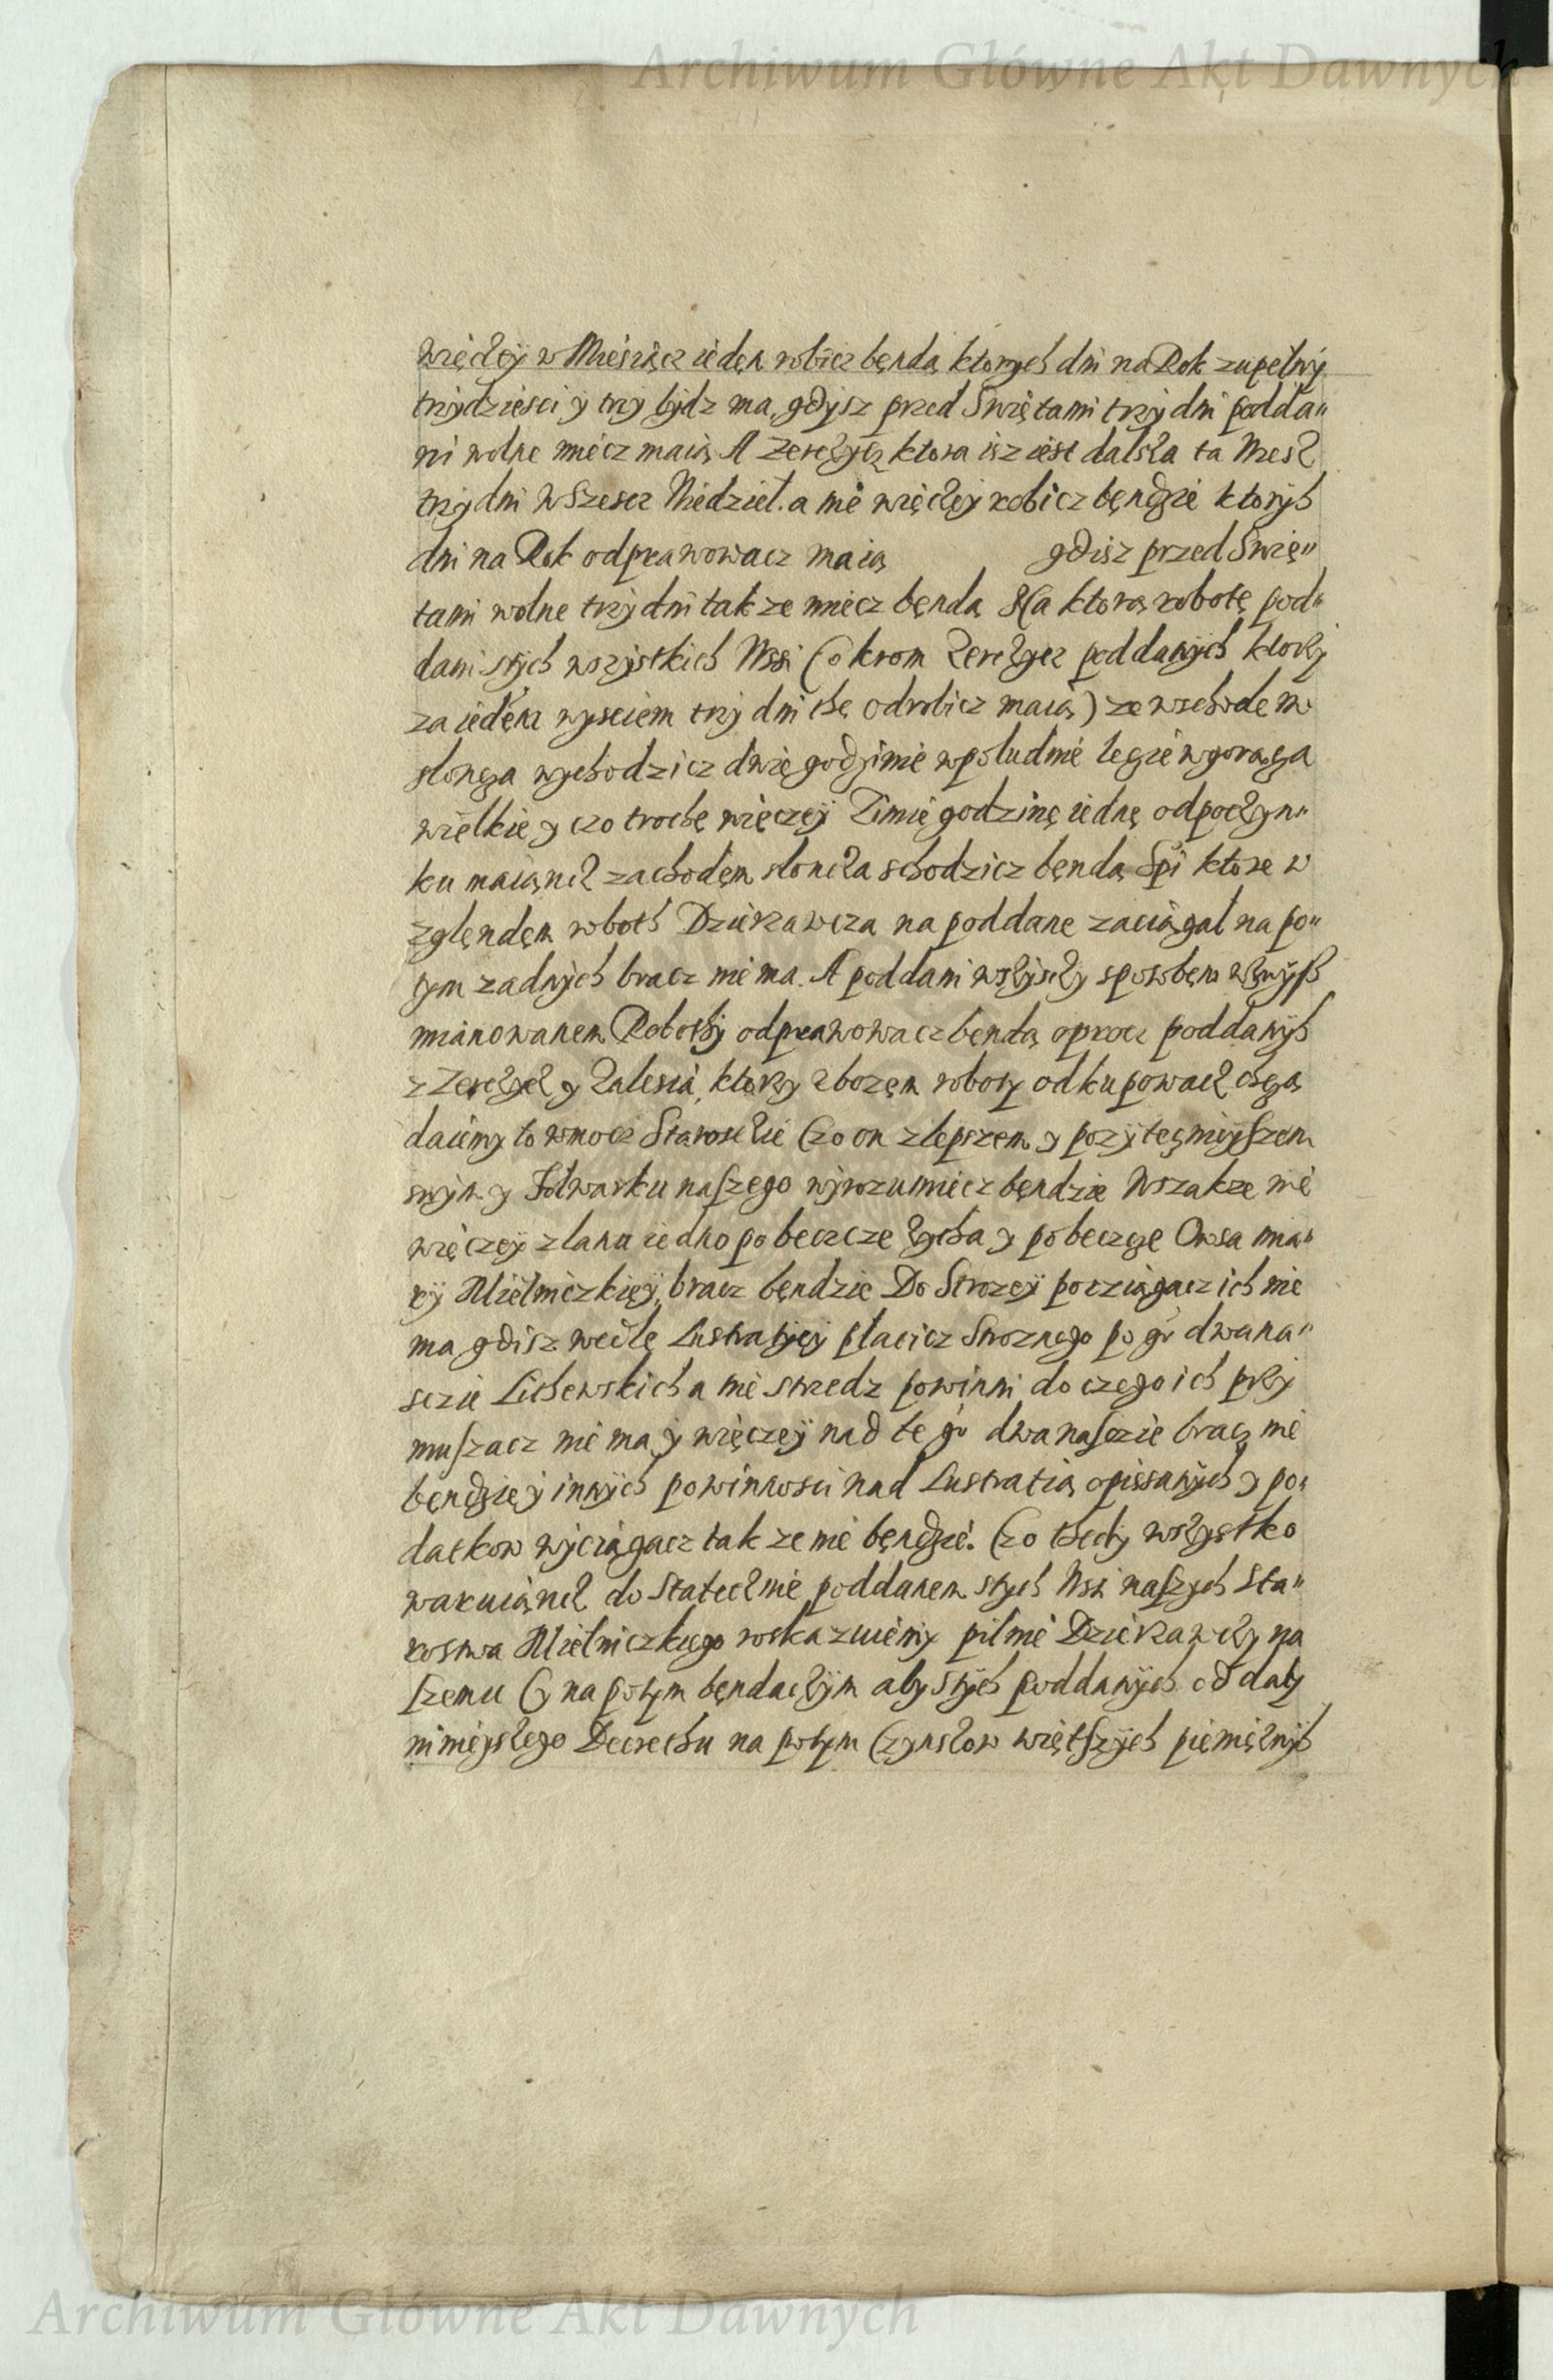 Archiwum Główne Akt Dawnych
więczey w Miesiącz ieden robicz bendą ktorych dni na Rok zupełny
trzydziesci y trzy bydz ma, gdysz przed Swiętami trzy dni podda"
ni wolne miecz maią A Zerczycz ktora isz iest dalsza ta Wiesz
trzy dni w szescz Niedziel. a nie więczey robicz bendzie ktorych
dni na Rok odprawowacz maią gdisz przed Swię"
tami wolne trzy dni takze miecz bendą Na ktorą robotę pod"
dani stych wszystkich Wsi (okrom Zerczycz poddanych ktorzy
za iedem wysciem trzy dni the odrobicz maią) ze wschodem
sloncza wychodzicz dwie godzinie w poludnie leczie w gorącza
wielkie y czo trochę więczey Zimie godzinę iednę odpoczyn"
ku maiącz zachodem sloncza schodzicz bendą Spi ktore w
zglendem roboth Dzierzawcza na poddane zaciągal na po"
tym zadnych bracz nie ma. A poddani wszysczy sposobem zwysz
mianowanem Robothy odprawowacz bendą oprocz poddanych
z Zerczycz y Zalesia, ktorzy zbozem roboty odkupowacz chczą
daiemy to w mocz Starosczie czo on z lepszem y pozyteczniejszem
swym y Folwarku naszego wyrozumiecz bendzie Wszakze nie
więczey z lanu iedno po beczcze zytha y po beczcze Owsa mia"
ry Mielniczkiey, bracz bendzie Do Strozey pocziągacz ich nie
ma gdisz wedle Lustratiey placicz Stroznego po g° dwana"
sczie Lithewskich a nie strzedz powinni do czego ich przy
muszacz nie ma y więczey nad te g° dwanasczie bracz nie
bendzie y innych powinnosci nad Lustratią opissanych y po"
datkow wyciągacz takze nie bendzie. Czo thedy wszystko
waruiącz dostatecznie poddanem stych Wsi naszych Sta"
rostwa Mielniczkiego roskazuiemy pilnie Dzierzawczy na
szemu (y na potym bendaczym aby stych poddanych od daty
ninieyszego Decrethu na potym Czynszow więtszych pienięznych
Archiwum Główne Akt Dawnych